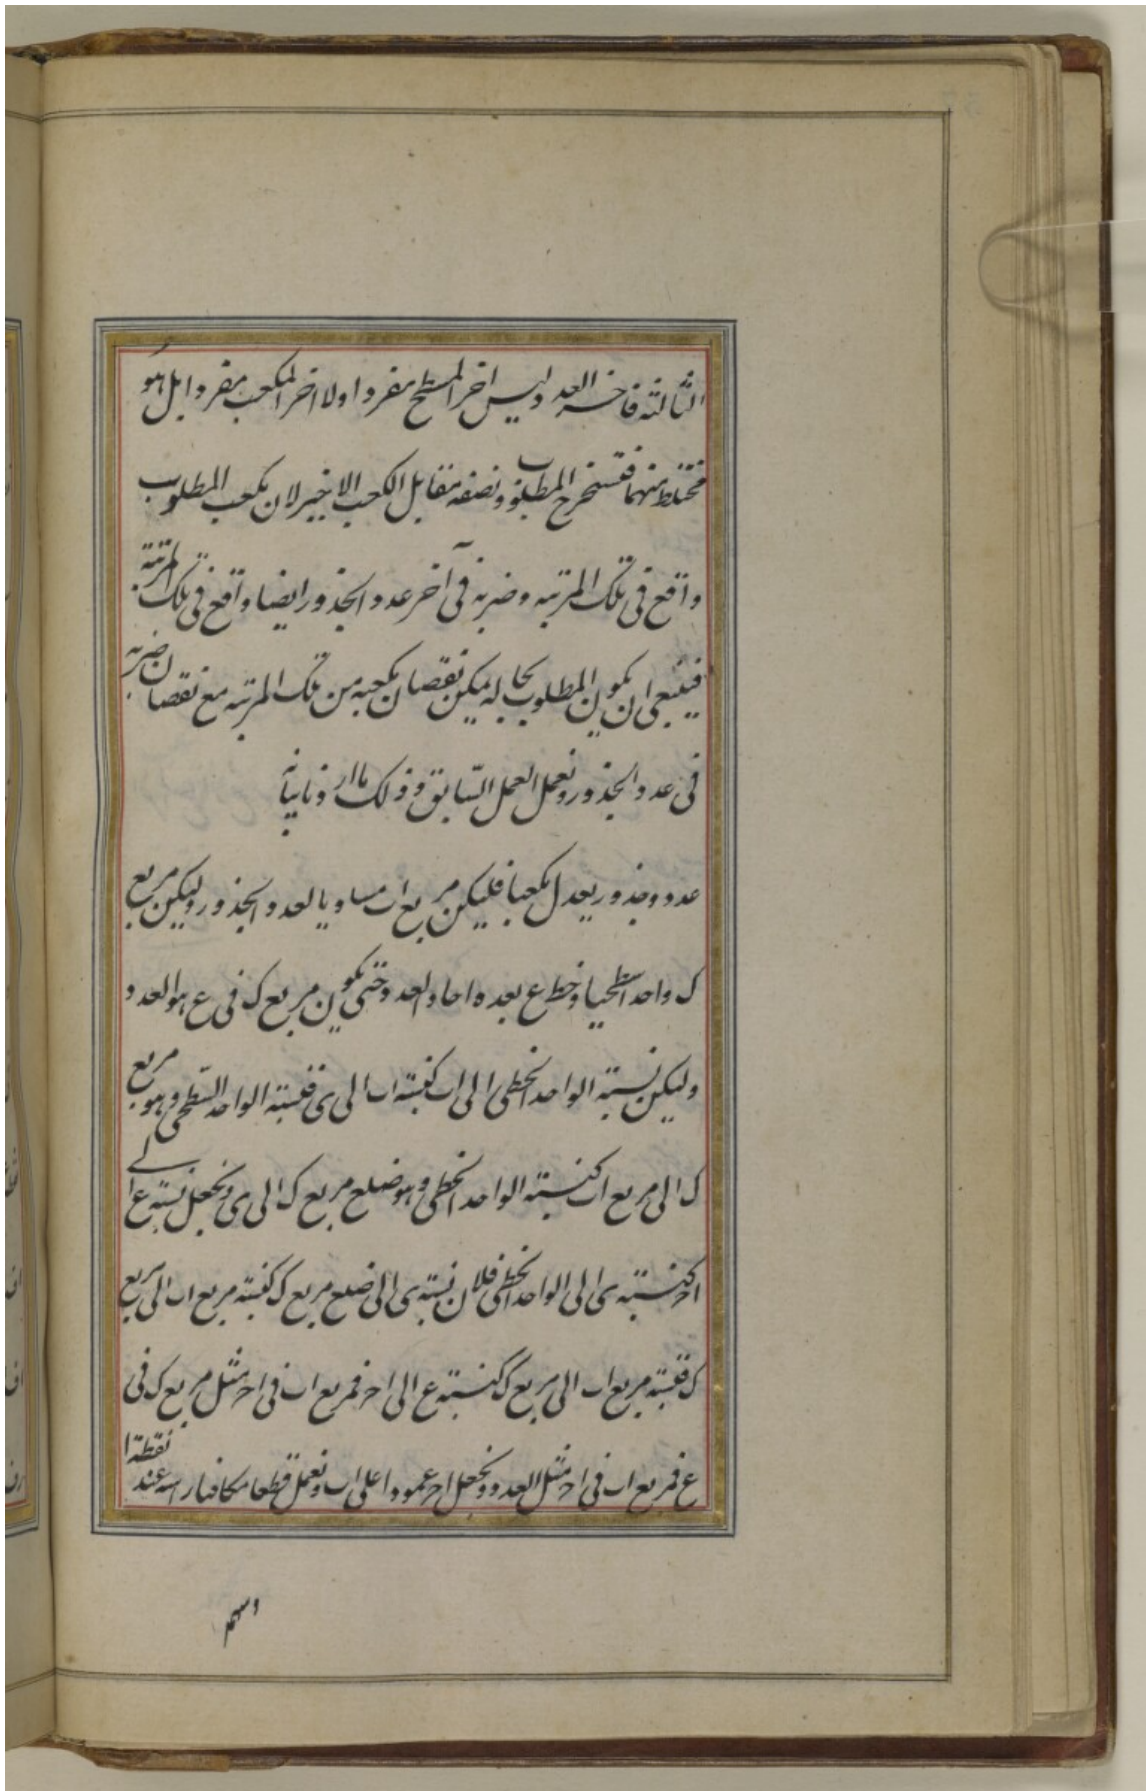 الثالثة فاخر العدد ليس اخر المسطح مفردا ولا اخر المكعب مفردا بل هو
مختلط منهما فتستخرج المطلوب ونضعه مقابل الكعب الاخير لان مكعب المطلوب
واقع فى تلك المرتبه وضربه فى آخر عدد الجذور ايضا واقع فى تلك المرتبة
فينبغى ان يكون المطلوب بحاله يمكن نقصان مكعبه من تلك المرتبه مع نقصان ضربه
فى عدد الجذور ونعمل العمل السّابق وذلك ما اردنا بيانه
عدد وجذور يعدل مكعبا فليكن مربع اب مساويا لعدد الجذور وليكن مربع
ك واحدا سطحيا وخط ع بعده احاد العدد حتى يكون مربع ك فى ع هو العدد
وليكن نسبة الواحد الخطى الى اب كنسبة اب الى ى فنسبة الواحد السّطحى وهو مربع
ك الى مربع اب كنسبة الواحد الخطى وهو ضلع مربع ك الى ى ونجعل نسبة ع الى
احـ كنسبة ى الى الواحد الخطى فلان نسبة ى الى ضلع مربع ك كنسبة مربع اب الى مربع
ك فنسبة مربع اب الى مربع ك كنسبة ع الى احـ فمربع اب فى احـ مثل مربع ك فى
ع فمربع اب فى احـ مثل العدد ونجعل احـ عمودا على اب ونعمل قطعا مكافيا راسه عند نقطة ا
وسهمه